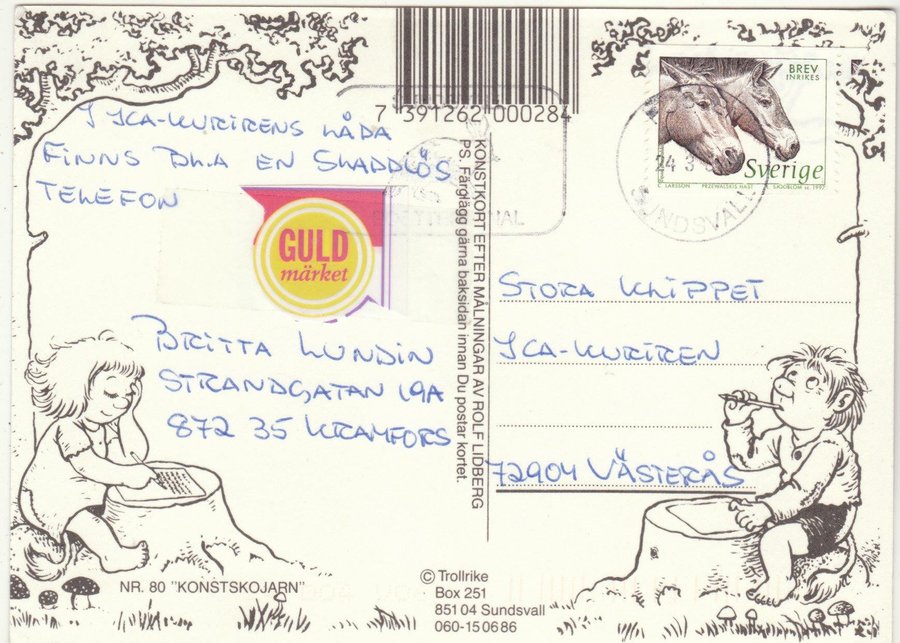 7 391262 000284
I ICA-KURIRENS LÅDA
FINNS BL.A EN SLADDLÖS
TELEFON
GULD
märket
BRITTA LUNDIN
STRANDGATAN 19A
872 35 KRAMFORS
KONSTKORT EFTER MÅLNINGAR AV ROLF LIDBERG
PS. Färglägg gärna baksidan innan Du postar kortet.
BREV
INRIKES
Sverige
C LARSSON PRZEWALSKIS HÄST E SJOOBLOM sc 1997
24 3
SUNDSVALL
STORA KLIPPET
ICA-KURIREN
72904 VÄSTERÅS
NR. 80 "KONSTSKOJARN"
© Trollrike
Box 251
851 04 Sundsvall
060-15 06 86